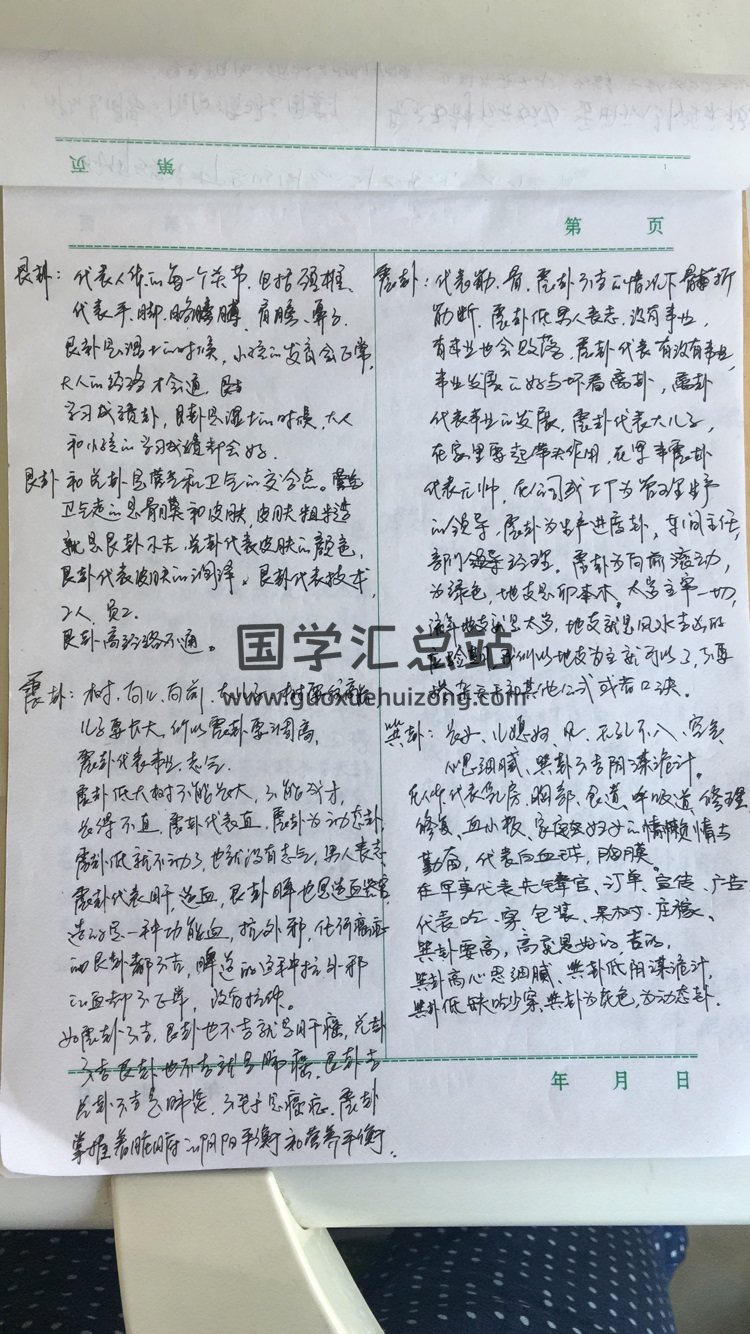 第 页
第 页
艮卦：代表人体的每一个关节，包括颈椎、
代表手、脚、胳膊、肩膀、鼻子
艮卦是湿土的时候，小孩的发育会正常，
大人的经络才会通，
学习成绩卦，艮卦是湿土的时候，大人
和小孩的学习成绩都会好。
艮卦和兑卦是营气和卫气的交合点。营气
卫气走的是骨膜和皮肤，皮肤粗糙
就是艮卦不吉，兑卦代表皮肤的颜色，
艮卦代表皮肤的润泽。艮卦代表技术，
工人、员工。
艮卦高经络不通。
震卦：树、向上、向前、
儿子要长大，所以震卦要调高，
震卦代表事业、志气。
震卦低大树不能长大，不能成才，
长得不直，震卦代表直，震卦为动态卦，
震卦低就不动了，也就没有志气，男人丧志
震卦代表肝，造血，艮卦脾也是造血器官
造的是一种功能血，抗外邪，任何癌症
的艮卦都不吉，脾造的这种抗外邪
的血却不正常，没有抗体。
如震卦不吉，艮卦也不吉就是肝癌，兑卦
不吉艮卦也不吉就是肺癌，艮卦吉
兑卦不吉是肺炎，不至于是癌症，震卦
掌握着脏腑的阴阳平衡和营养平衡。
震卦：代表筋、骨，震卦不吉的情况下骨折
筋断，震卦低男人丧志，没有事业，
有事业也会败落，震卦代表有没有事业，
事业发展的好与坏看离卦，震卦
代表事业的发展，震卦代表大儿子，
在家里要起带头作用，在军事震卦
代表元帅，在公司或工厂为管理生产
的领导，震卦为生产进度卦，车间主任，
部门领导经理。震卦为向前滚动，
为绿色，地支是卯本木。太岁主宰一切，
流年地支就是太岁，地支就是风水吉凶的
我们以地支为主就可以了，不要
其他公式或者口决。
巽卦：长女、儿媳妇、风、无孔不入、容气
心思细腻、巽卦不吉阴谋诡计。
在人体代表乳房、胸部、食道、呼吸道、修理
修复、血小板、家庭妇女的懒惰与
勤奋，代表白血球，胸膜。
在军事代表先锋官、订单、宣传、广告
代表吃、穿、包装、果树、庄稼、
巽卦要高，高度是好的，吉的，
巽卦高心思细腻、巽卦低阴谋诡计，
巽卦低缺吃少穿、巽卦为灰色，为动态卦。
年 月 日
国学汇总站
www.guoxuehuizong.com